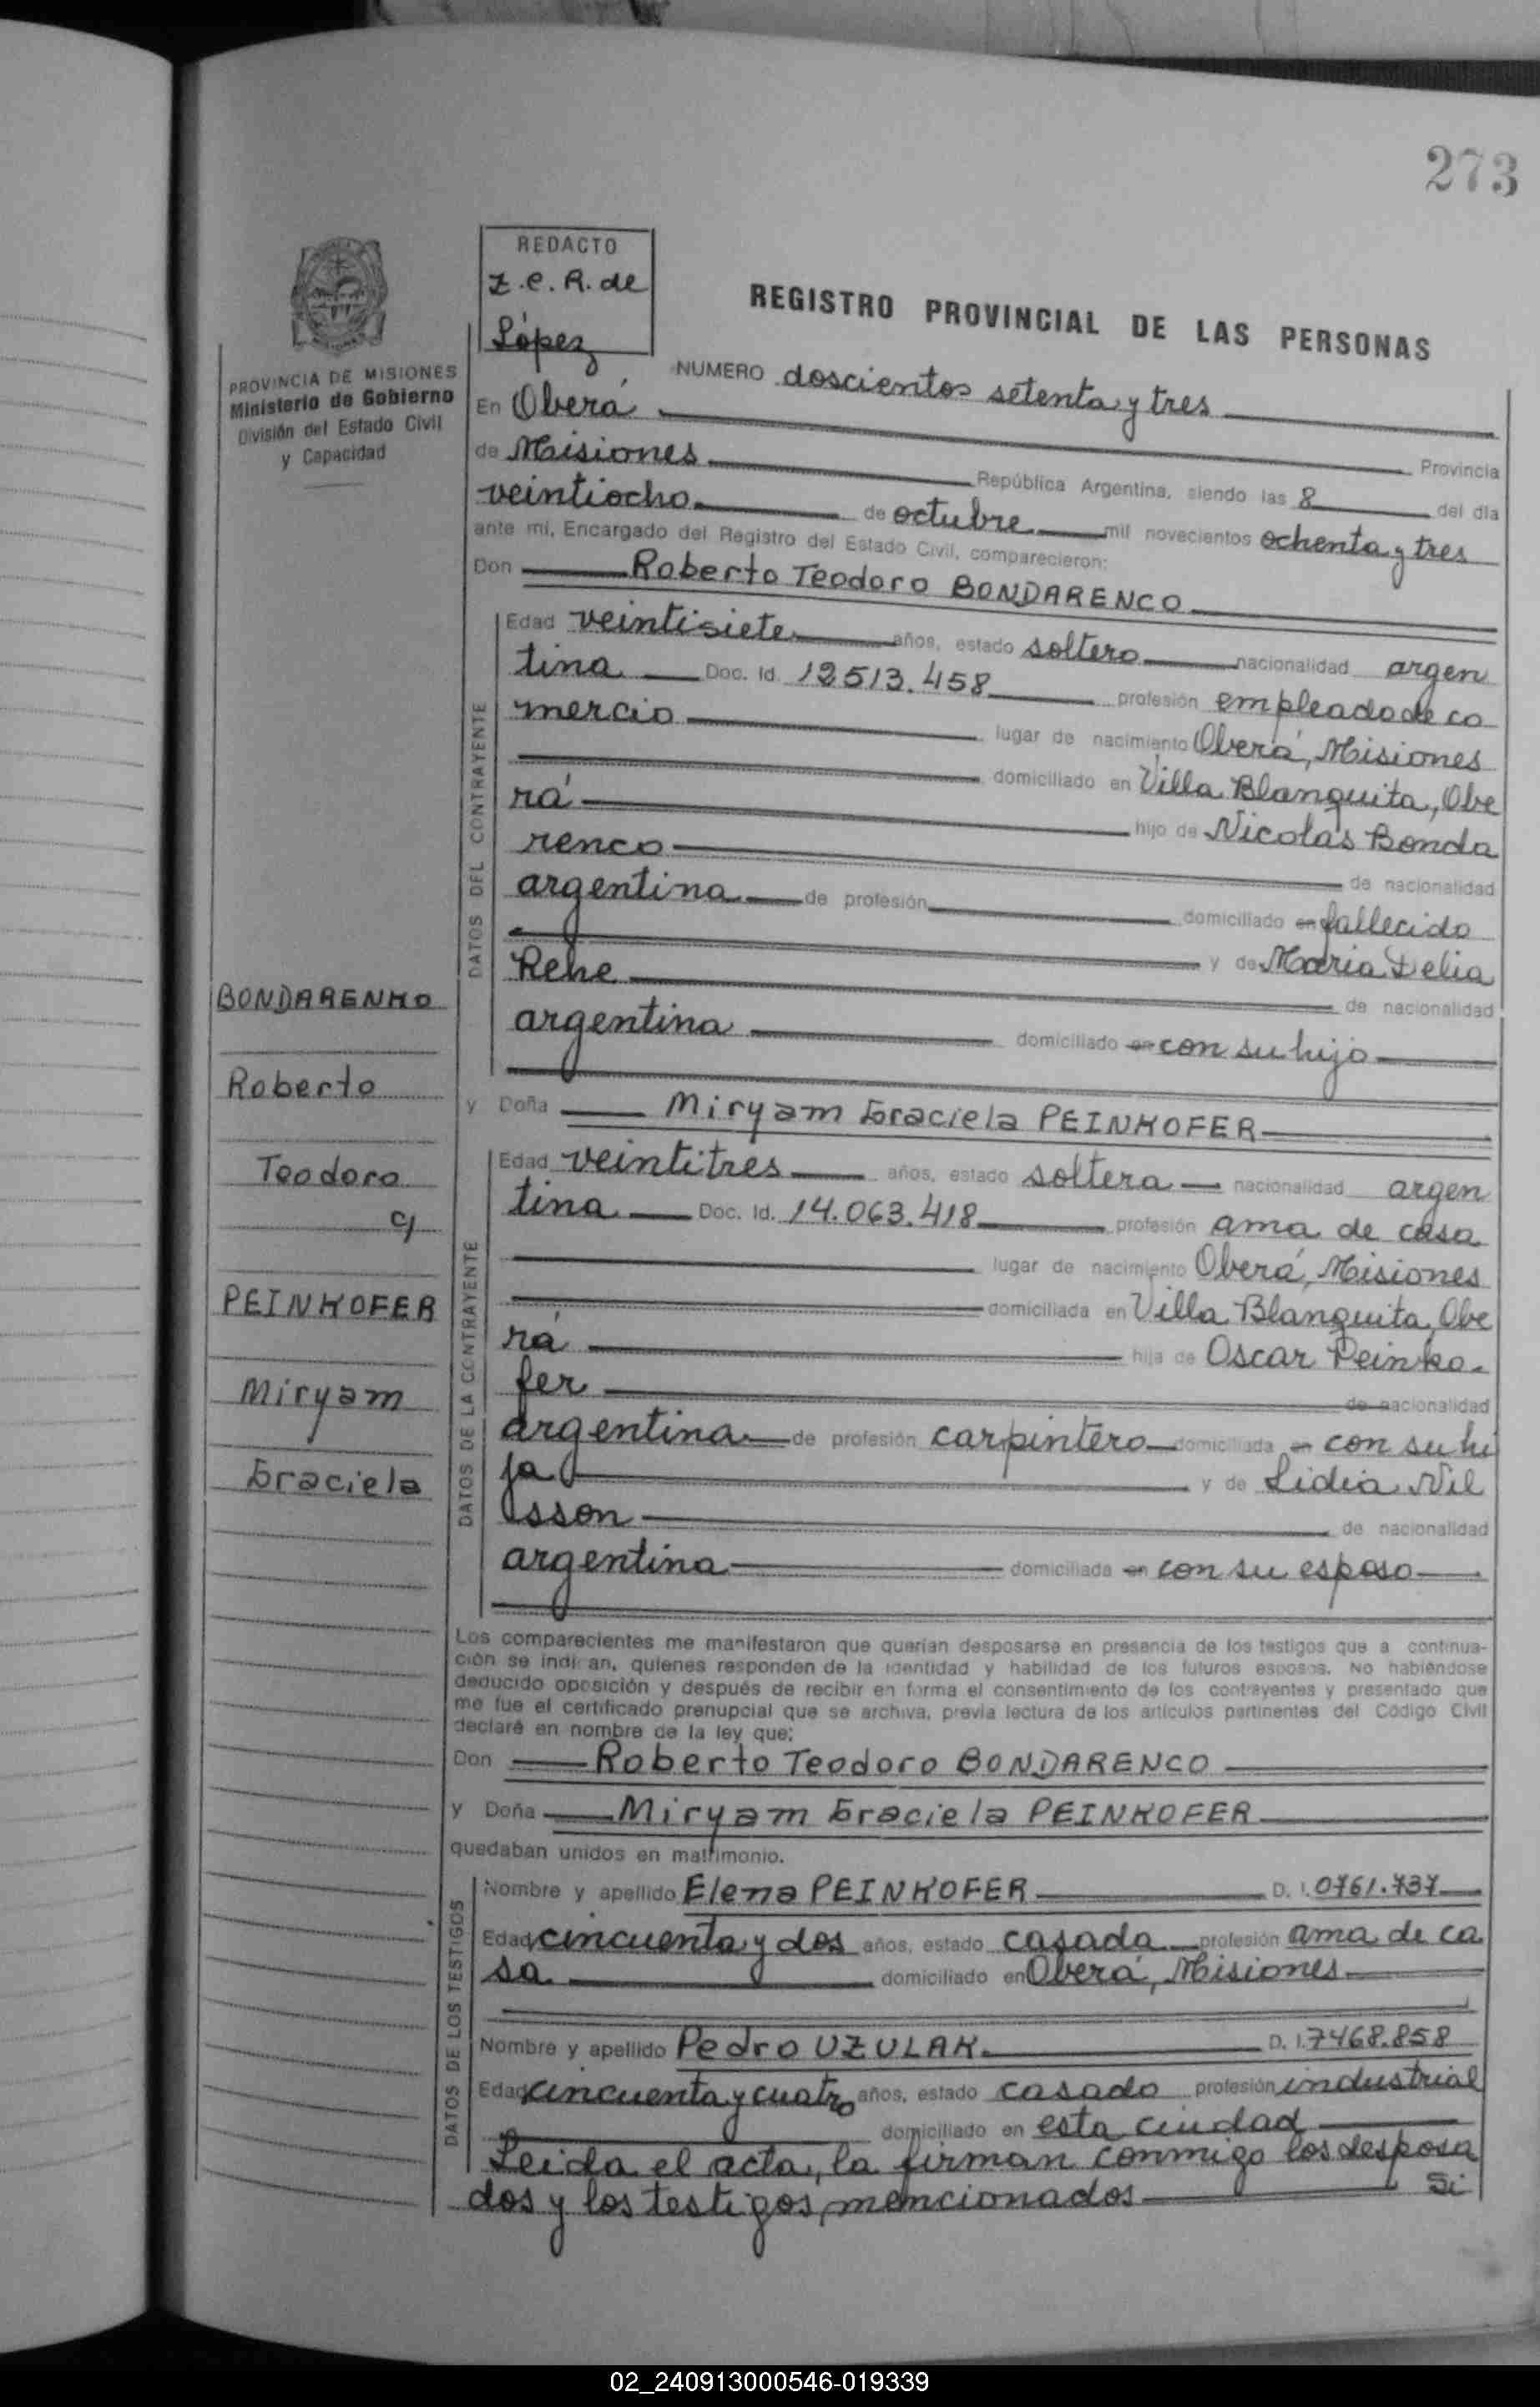 273
REDACTO
Z.e.R. de
López
REGISTRO PROVINCIAL DE LAS PERSONAS
PROVINCIA DE MISIONES
Ministerio de Gobierno
División del Estado Civil
y Capacidad
NUMERO doscientos setenta y tres
En Oberá Provincia
de Misiones República Argentina, siendo las 8 del día
veintiocho de octubre mil novecientos ochenta y tres
ante mí, Encargado del Registro del Estado Civil, comparecieron:
Don Roberto Teodoro BONDARENCO
DATOS DEL CONTRAYENTE
Edad veintisiete años, estado soltero nacionalidad argen
tina Doc. Id. 12513.458 profesión empleado de co
mercio lugar de nacimiento Oberá, Misiones
domiciliado en Villa Blanquita, Obe
rá hijo de Nicolás Bonda
renco de nacionalidad
argentina de profesión domiciliado en fallecido
y de María Delia
Rehe de nacionalidad
argentina domiciliado en con su hijo
BONDARENKO
Roberto
Teodoro
c/
PEINKOFER
Miryam
Graciela
y Doña Miryam Graciela PEINKOFER
DATOS DE LA CONTRAYENTE
Edad veintitres años, estado soltera nacionalidad argen
tina Doc. Id. 14.063.418 profesión ama de casa
lugar de nacimiento Oberá, Misiones
domiciliada en Villa Blanquita, Obe
rá hija de Oscar Peinko-
fer de nacionalidad
argentina de profesión carpintero domiciliada en con su hi
ja y de Lidia Nil
sson de nacionalidad
argentina domiciliada en con su esposo
Los comparecientes me manifestaron que querían desposarse en presencia de los testigos que a continua-
ción se indican, quienes responden de la identidad y habilidad de los futuros esposos. No habiéndose
deducido oposición y después de recibir en forma el consentimiento de los contrayentes y presentado que
me fue el certificado prenupcial que se archiva, previa lectura de los artículos pertinentes del Código Civil
declaré en nombre de la ley que:
Don Roberto Teodoro BONDARENCO
y Doña Miryam Graciela PEINKOFER
quedaban unidos en matrimonio.
DATOS DE LOS TESTIGOS
Nombre y apellido Elena PEINKOFER D. I. 0761.737
Edad cincuenta y dos años, estado casada profesión ama de ca
sa domiciliado en Oberá, Misiones
Nombre y apellido Pedro UZULAK D. I. 7468.858
Edad cincuenta y cuatro años, estado casado profesión industrial
domiciliado en esta ciudad
Leida el acta, la firman conmigo los desposa
dos y los testigos mencionados Si
02_240913000546-019339